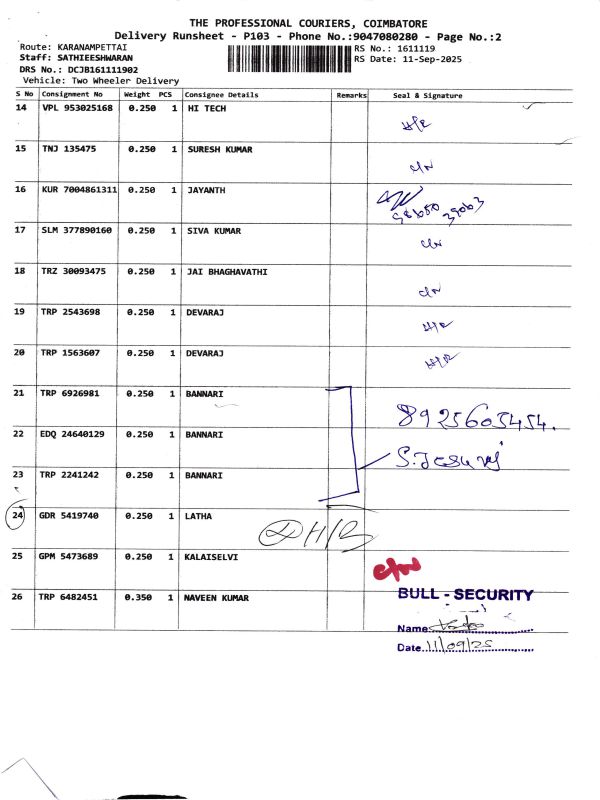 THE PROFESSIONAL COURIERS, COIMBATORE
Delivery Runsheet - P103 - Phone No.:9047080280 - Page No.:2
Route: KARANAMPETTAI
RS No.: 1611119
Staff: SATHIEESHWARAN
RS Date: 11-Sep-2025
DRS No.: DCJB161111902
Vehicle: Two Wheeler Delivery
S No Consignment No Weight PCS Consignee Details Remarks Seal & Signature
14 VPL 953025168 0.250 1 HI TECH
15 TNJ 135475 0.250 1 SURESH KUMAR
16 KUR 7004861311 0.250 1 JAYANTH
17 SLM 377890160 0.250 1 SIVA KUMAR
18 TRZ 30093475 0.250 1 JAI BHAGHAVATHI
19 TRP 2543698 0.250 1 DEVARAJ
20 TRP 1563607 0.250 1 DEVARAJ
21 TRP 6926981 0.250 1 BANNARI
8925605454.
22 EDQ 24640129 0.250 1 BANNARI
23 TRP 2241242 0.250 1 BANNARI
24 GDR 5419740 0.250 1 LATHA
25 GPM 5473689 0.250 1 KALAISELVI
26 TRP 6482451 0.350 1 NAVEEN KUMAR
BULL - SECURITY
Name
Date 11/09/25